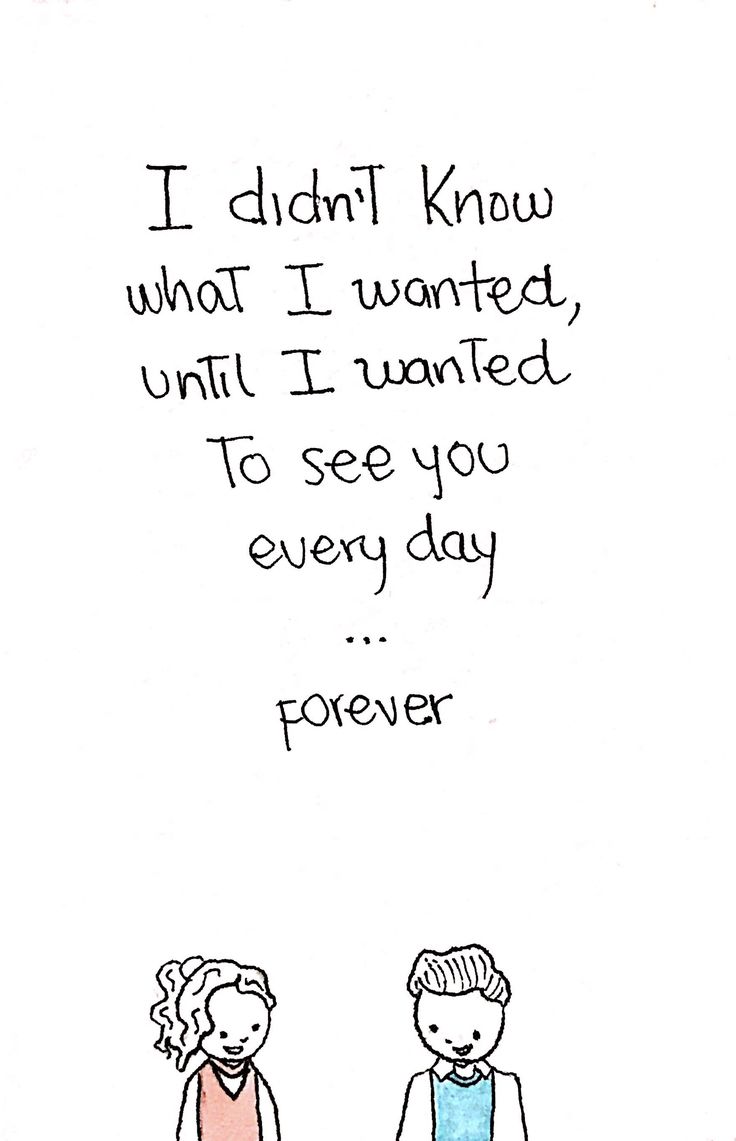 I didn't know
what I wanted,
until I wanted
To see you
every day
...
Forever